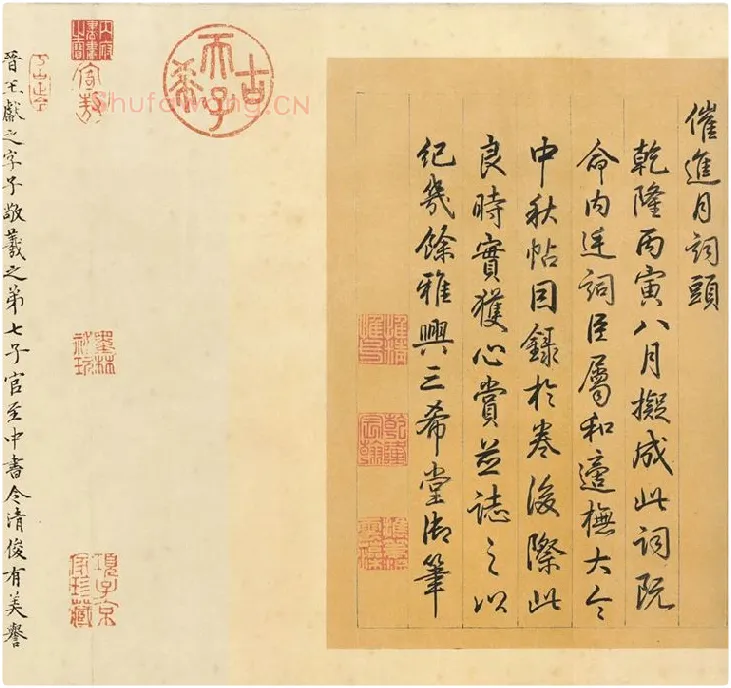 催進月詞頭
乾隆丙寅八月擬成此詞既
命内廷詞臣屬和適橅大令
中秋帖因錄於卷後際此
良時實獲心賞並誌之以
紀幾餘雅興三希堂御筆
乾隆宸翰
古希天子
shufawang.CN
墨林祕玩
項子京家珍藏
晉王獻之字子敬羲之第七子官至中書令清俊有美譽